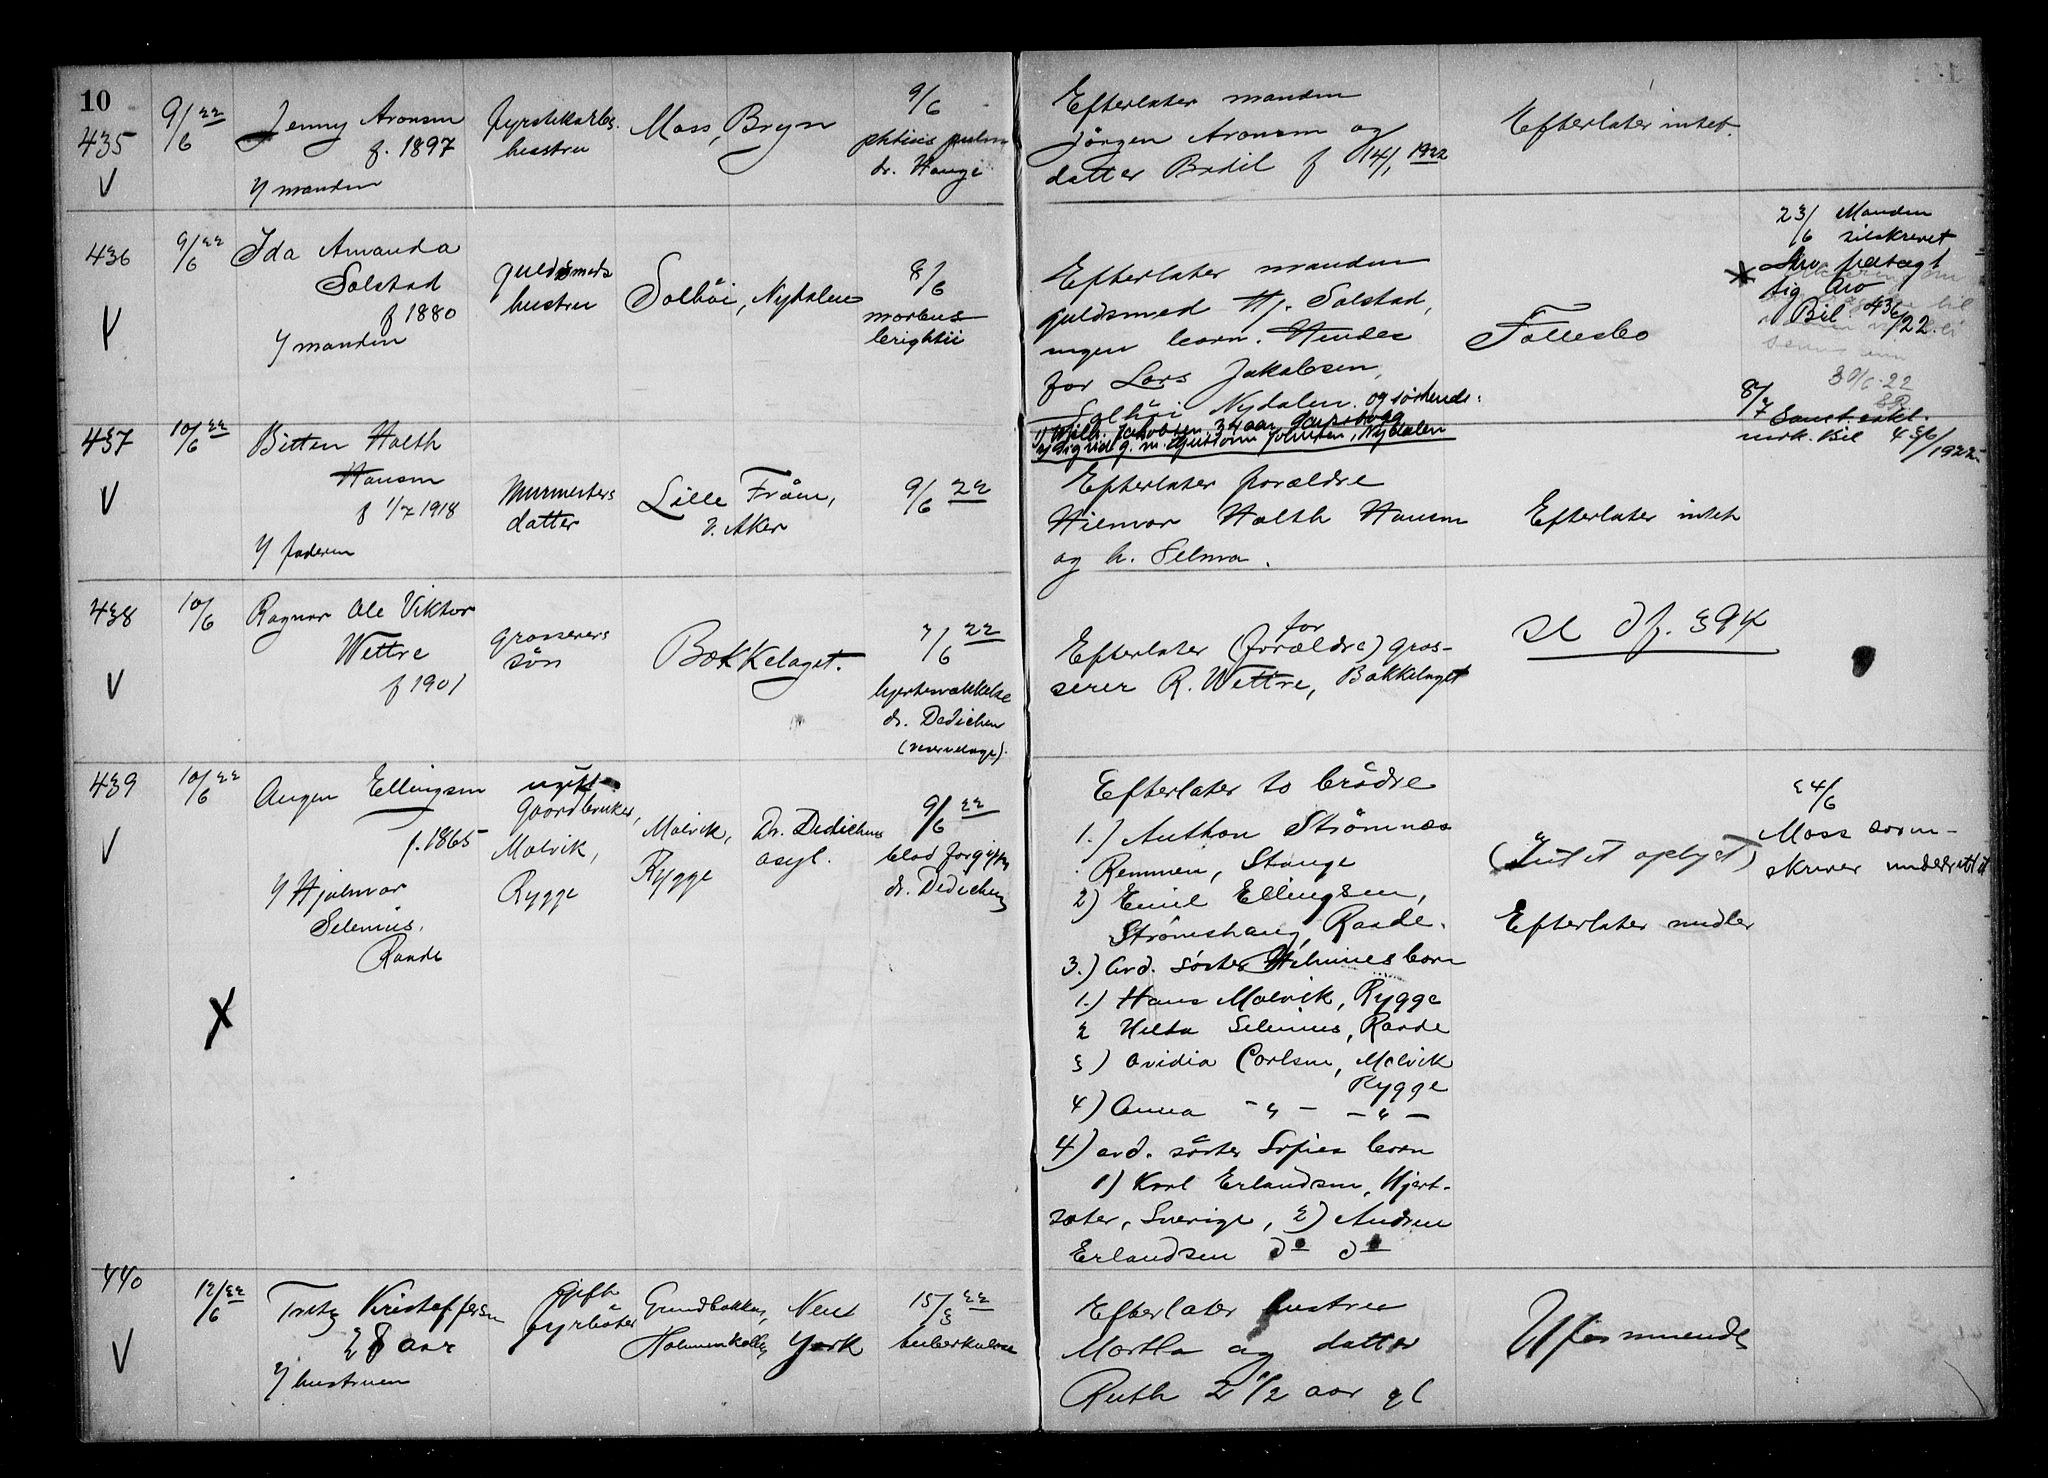 10
435
9/6 22
Jenny Aronsen
f. 1897
v/ manden
fyrstikarb.
hustru
Moss, Bryn
9/6
phtisis pulm
dr. Hauge
Efterlater manden
Jörgen Aronsen og
datter Bodil f 14/1 1922
Efterlater intet.
436
9/6 22
Ida Amanda
Solstad
f 1880
v/ manden
guldsmeds
hustru
Solhöi, Nydalen
8/6
morbus
brightii
Efterlater manden
guldsmed Hj. Solstad,
ingen barn. Hendes
far Lars Jakobsen,
Solhöi Nydalen. og söskende:
1) Wilh. Jakobsen, 34 aar,
2) Sigrid g. m. Johnsen, Nydalen
Fællesbo
23/6 Manden
tilskrevet
Arv paatagt
sig arv
Bil. 436/22.
30/6 22
8/7 Samt. erkl.
merk. Bil 436/1922
437
10/6 22
Bitten Holth
Hansen
f 1/7 1918
v/ faderen
Murmesters
datter
Lille Fråen,
V. Aker
9/6 22
Efterlater forældre
Hilmar Holth Hansen
og h. Selma.
Efterlater intet
438
10/6
Ragnar Ole Viktor
Wettre
f 1901
grosserers
sön
Bækkelaget.
7/6 22
hjertesvækkelse
dr. Dedichen
(reservelæge).
Efterlater (forældre) far gros-
serer R. Wettre, Bækkelaget
se df. 394
439
10/6 22
Augen Ellingsen
f. 1865
v/ Hjalmar
Selenius,
Raade
ugift
Gaardbruker,
Molvik,
Rygge
Molvik,
Rygge
Dr. Dedichens
asyl.
9/6 22
blodforgiftn
dr. Dedichen
Efterlater to brödre
1.) Anthon Strömnæs
Remmen, Stange
2) Emil Ellingsen,
Strömshaug, Raade.
3.) avd. söster Helmines barn
1.) Hans Molvik, Rygge
2 Helda Selenius, Raade
3) Ovidia Carlsen, Molvik
Rygge
4) Anna -"- -"-
4) avd. söster Sofies barn
1) Karl Erlandsen, Hjert-
sæter, Sverige, 2) Andrea
Erlandsen do do
(Intet oplyst)
Efterlater midler
24/6
Moss soren-
skriver underrettet
440
12/6 22
Fritz Kristoffersen
28 aar
v/ hustruen
gift
fyrböter
Grundbakken,
Holmenkollen
New
York
15/3 22
tuberkulose
Efterlater hustru
Martha og datter
Ruth 2 1/2 aar gl
Uformuende